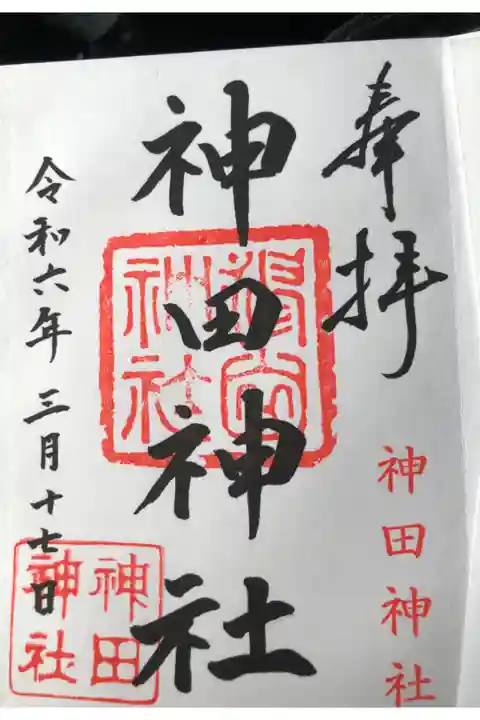 奉拝
神田神社
神田神社
令和六年三月十七日
神田
神社
神社